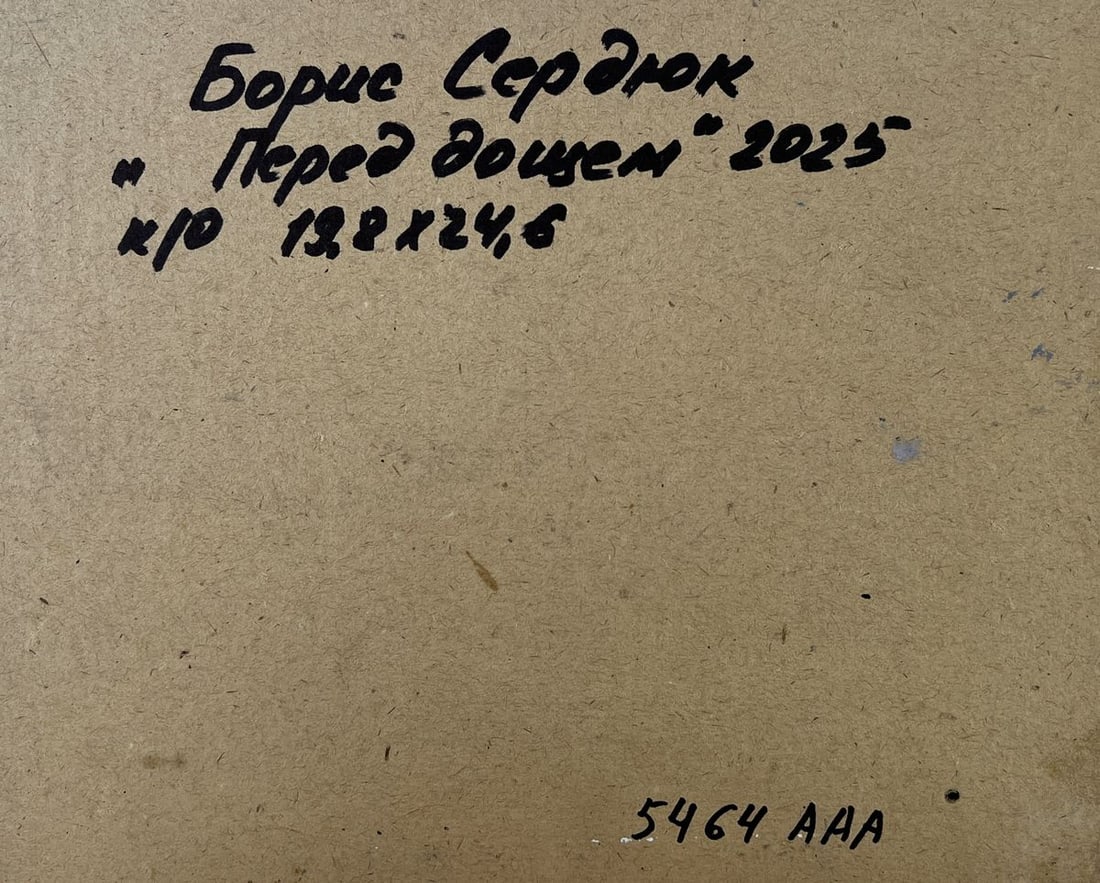 Борис Сердюк
„ Перед дощем " 2025
к/о 19,8 х 24,6
5464 ААА